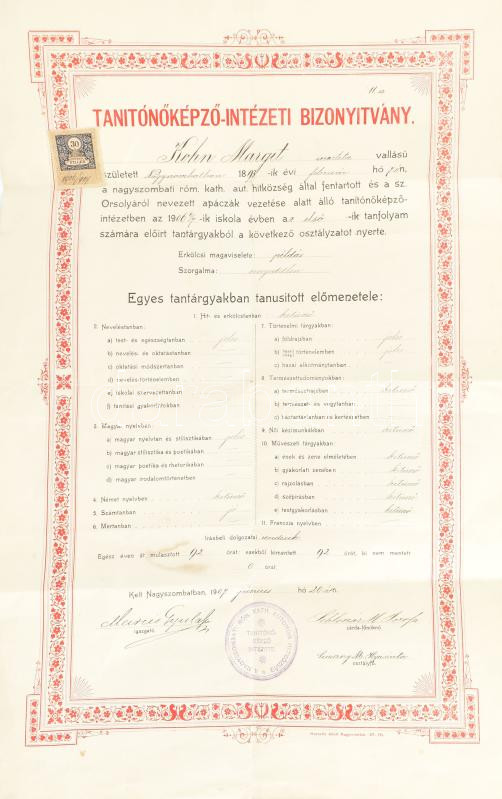 11 sz.
TANITÓNŐKÉPZŐ-INTÉZETI BIZONYITVÁNY.
30
FILLÉR
Kohn Margit vallású
született Nagyszombatban 18 -ik évi február hó -én,
a nagyszombati róm. kath. aut. hitközség által fentartott és a sz.
Orsolyáról nevezett apáczák vezetése alatt álló tanítónőképző-
intézetben az 1906/7-ik iskola évben az első -ik tanfolyam
számára előirt tantárgyakból a következő osztályzatot nyerte.
Erkölcsi magaviselete: példás
Szorgalma:
Egyes tantárgyakban tanusitott előmenetele:
1. Hit- és erkölcstanban kitünő
2. Neveléstanban:
a) test- és egészségtanban jeles
b) nevelés- és oktatástanban
c) oktatási módszertanban
d) nevelés-történelemben
e) iskolai szervezettanban
f) tanitási gyakorlatokban
3. Magyar nyelvben:
a) magyar nyelvtan és stilisztikában jeles
b) magyar stilisztika és poetikában
c) magyar poetika és rhetorikában
d) magyar irodalomtörténetben
4. Német nyelvben kitünő
5. Számtanban
6. Mértanban
7. Történelmi tárgyakban:
a) földrajzban jeles
b) történelemben jeles
c) hazai alkotmánytanban
8. Természettudományokban:
a) természetrajzban kitünő
b) természet- és vegytanban
c) háztartástanban és kertészetben
9. Női kézimunkákban kitünő
10. Művészeti tárgyakban:
a) ének és zene elméletében kitünő
b) gyakorlati zenében kitünő
c) rajzolásban kitünő
d) szépirásban kitünő
e) testgyakorlásban kitünő
11. Franczia nyelvben
Irásbeli dolgozatai rendesek
Egész éven át mulasztott 92 órát: ezekből kimentett 92 órát, ki nem mentett
0 órát
Kelt Nagyszombatban, 1907 junius hó 20-án.
igazgató
TANITÓNŐ-
KÉPZŐ
INTÉZETE
zárda-főnöknő
osztályfő